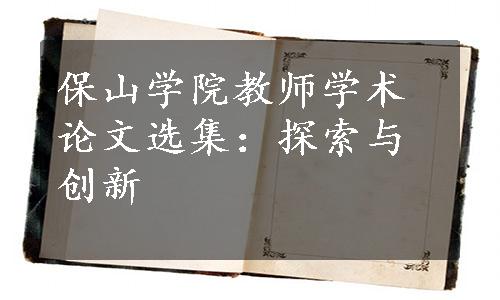 保山学院教师学术
论文选集：探索与
创新